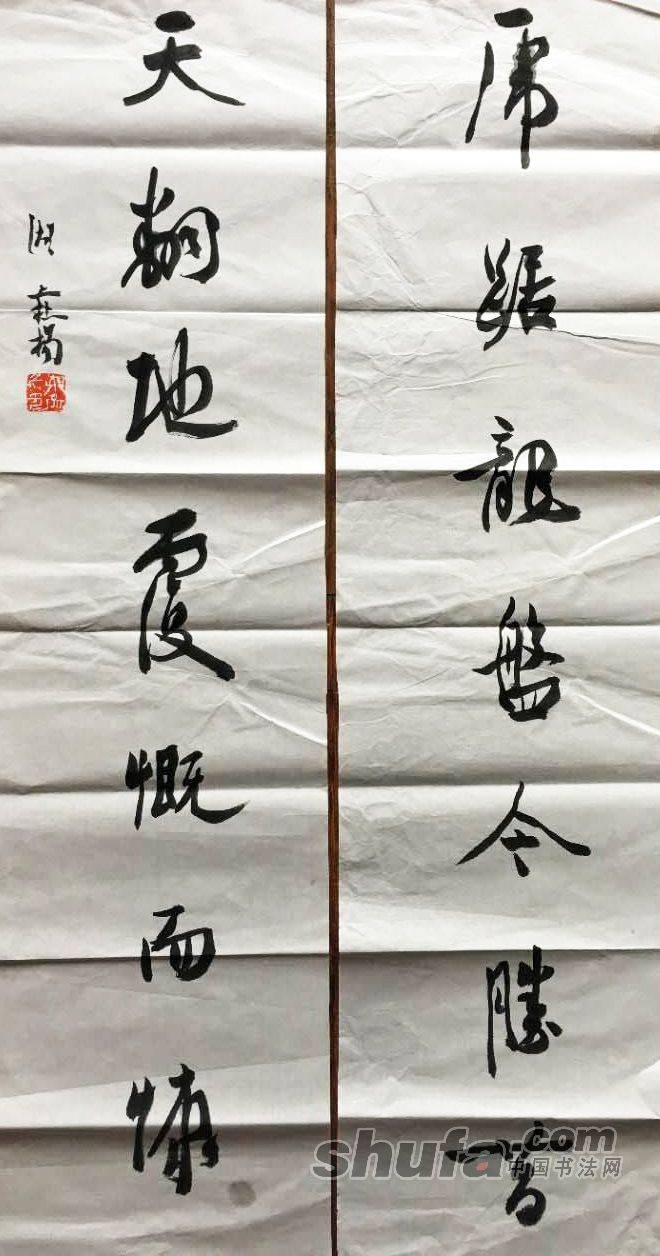 虎踞龍盤今勝昔
天翻地覆慨而慷
shufa.com
中国书法网